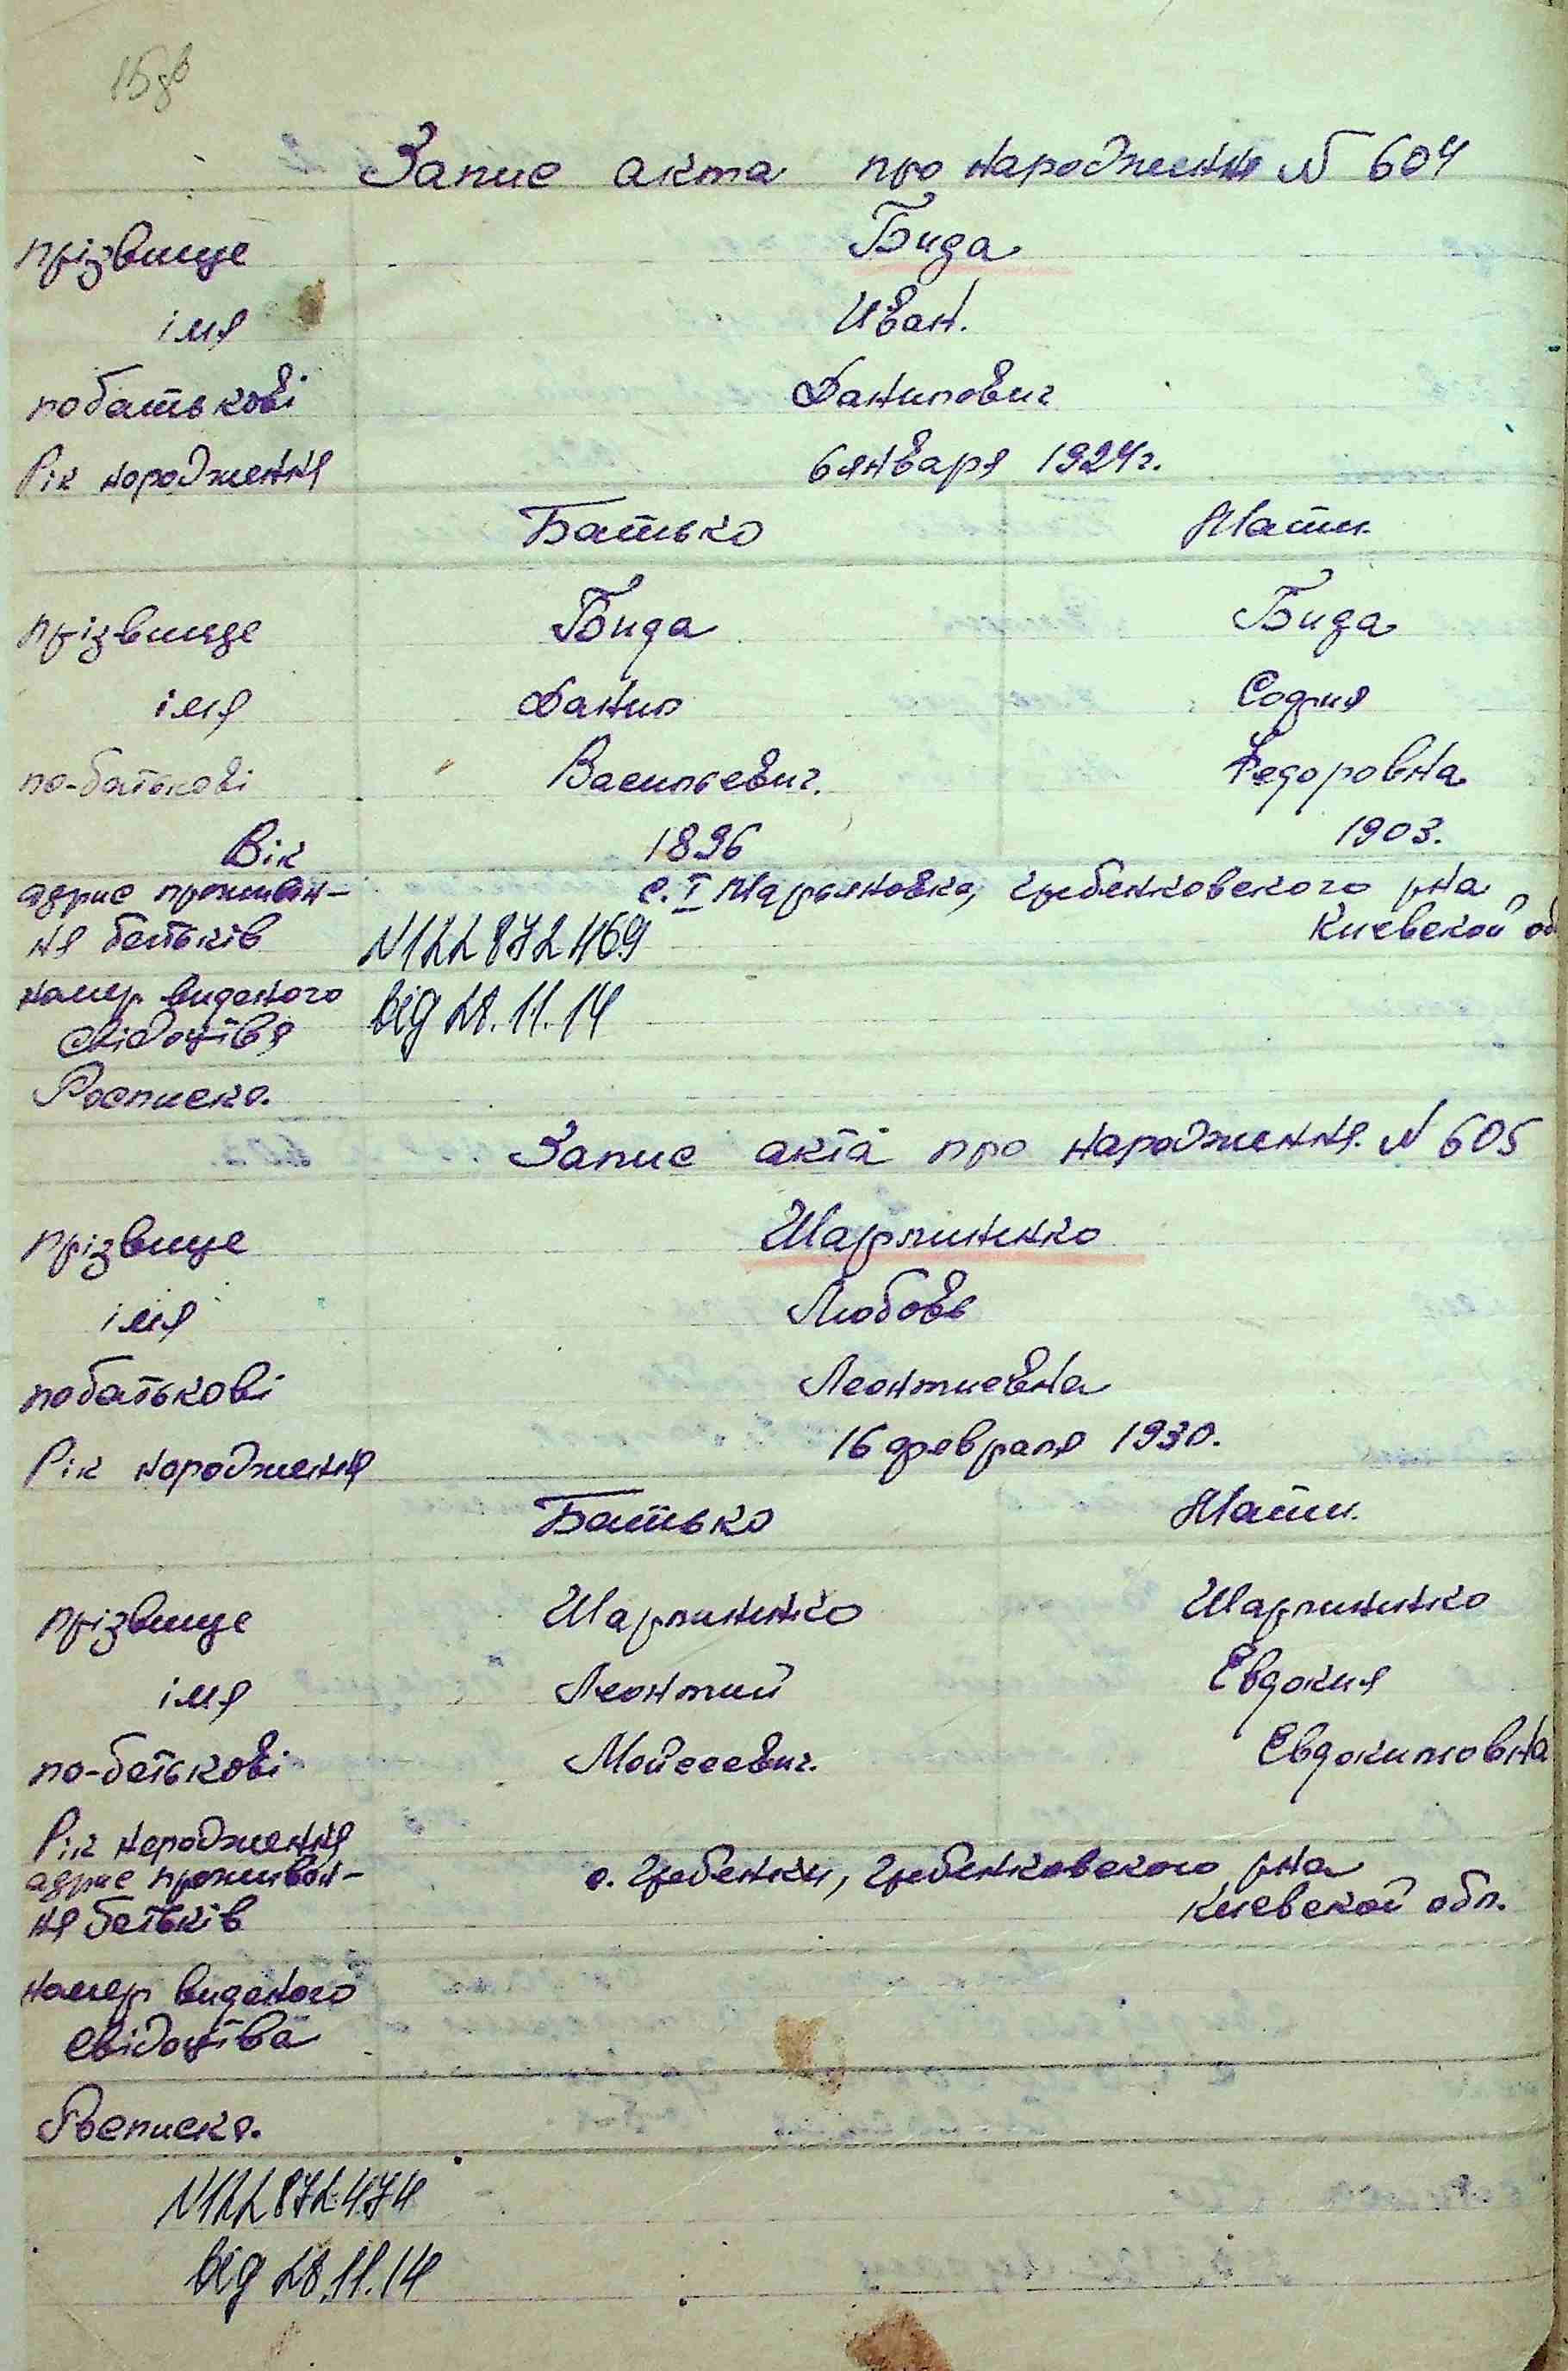 Запис акта про народження N 604
прізвище Бида
імя Иван.
по батькові Данилович
Рік народження 6 января 1924 г.
Батько Мати
прізвище Бида Бида
імя Данил София
по-батькові Васильевич. Федоровна
Вік 1896 1903.
адрис проживан- с. I Марьяновка, Гребенковского р-на
ня батьків N122872469 Киевской об
намер виданого від 28.11.14
свідоцтвя
Росписка.
Запис акта про народження. N 605
прізвище Шарлиненко
імя Любовь
по батькові Леонтиевна
Рік народження 16 февраля 1930.
Батько Мати.
прізвище Шарлиненко Шарлиненко
імя Леонтий Евдокия
по-батькові Мойсеевич. Евдокимовна
Рік народження
адрис проживан- с. Гребенки, Гребенковского р-на
ня батьків Киевской обл.
намер виданого
свідоцтва
Росписка.
N122872474
від 28.11.14